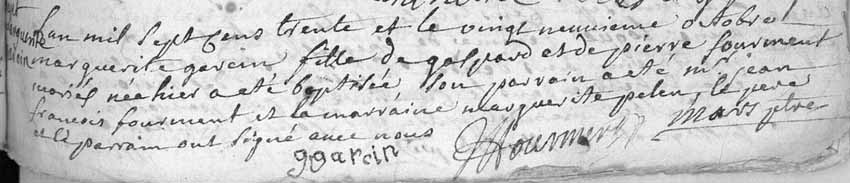 Lan mil sept cens trente et le vingt neuvieme octobre
marguerite garcin fille de gaspard et de pierre fourment
mariés née hier a eté baptisée son parrain a eté mr jean
francois fourment et la marraine marguerite pelen, le pere
et le parrain ont signé avec nous
ggarcin
fourment
mars ptre